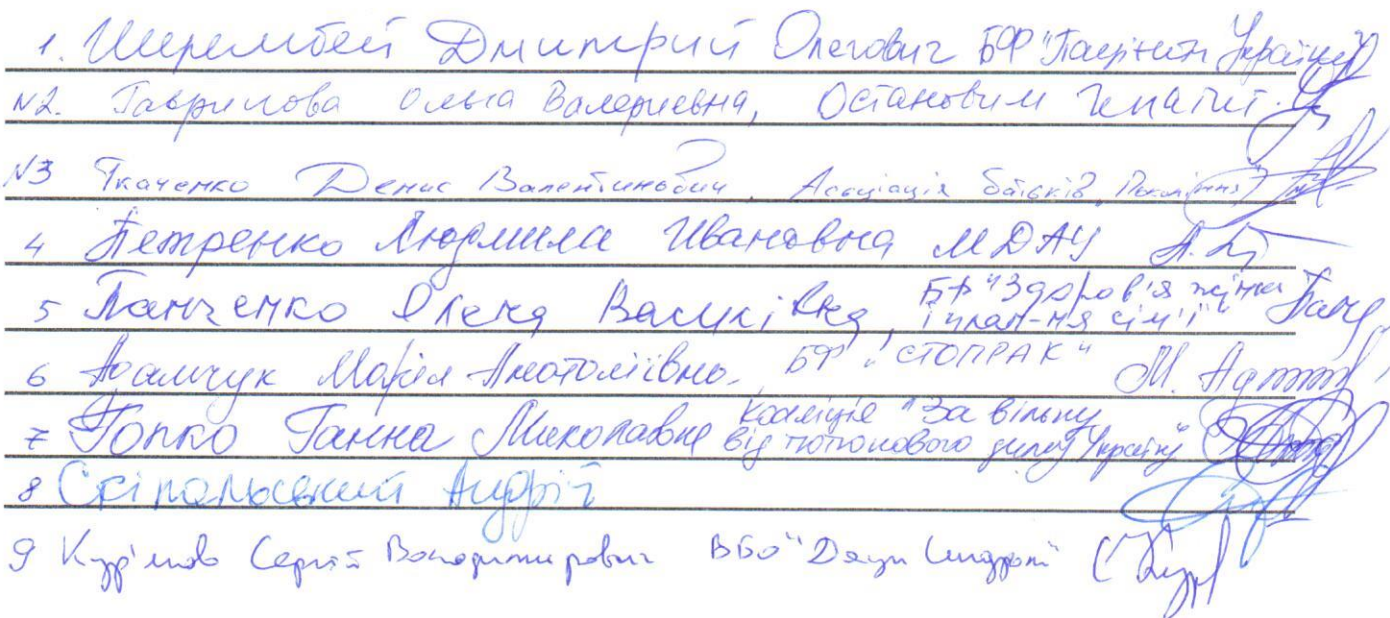 1. Шерембей Дмитрий Олегович БФ "Пацієнти України"
N2. Гаврилова Ольга Валериевна, Остановим гепатит.
N3 Ткаченко Денис Валентинович, Асоціація батьків
4 Петренко Людмила Ивановна МДАУ
5 Панченко Олена Василівна, БФ "Здоров'я жінки і план-ня сім'ї"
6 Адамчук Марія Анатоліївна БФ "СТОПРАК" М. Адам
7 Гопко Ганна Миколаївна Коаліція "За вільну від тютюнового диму Україну"
8 Скіпальський Андрій
9 Сергій Володимирович ВБО "Даун Синдром"